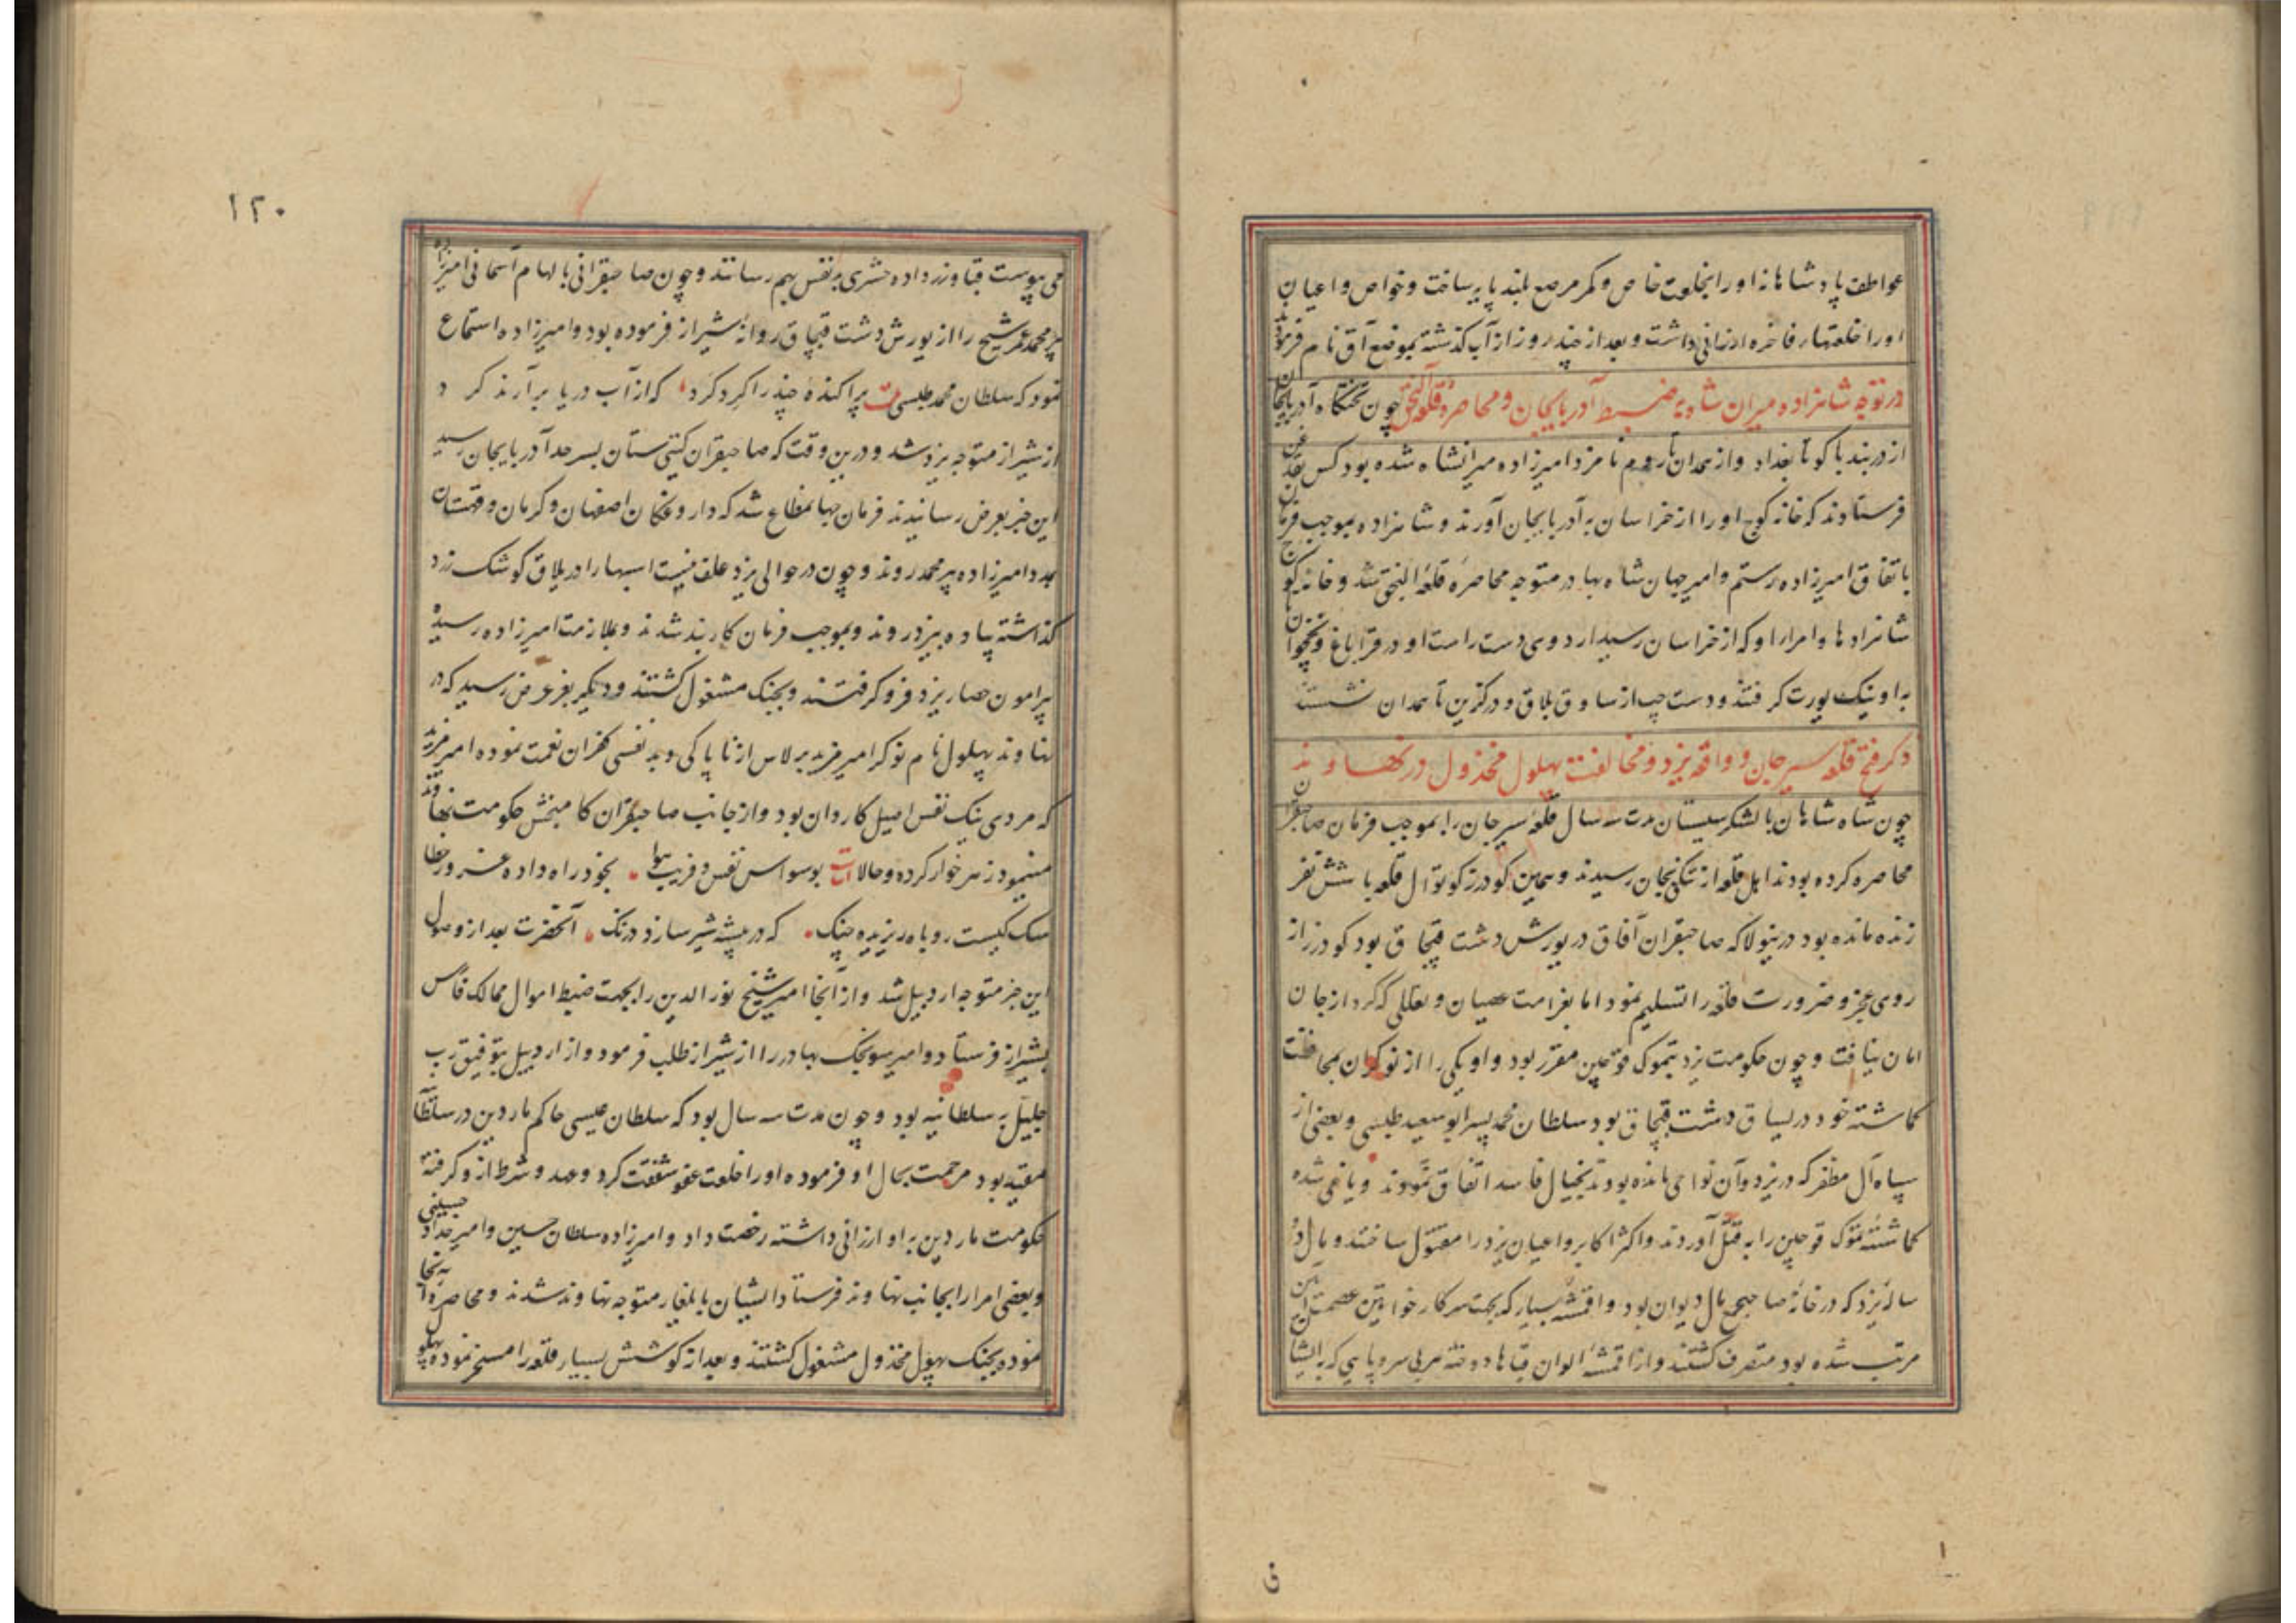 عواطف پادشاهانه اورا بخلعت خاص و کمر مرصع بلند پایه ساخت و خواص و اعیان
اورا خلعتهاء فاخره ارزانی داشت و بعد از چند روز از آب گذشته بموضع آق نام فرمود
در توجه شاهزاده میران شاه به ضبط آذربایجان و محاصره قلعه النجق چون تختگاه آذربایجان
از دربند باکو تا بغداد و از همدان تا روم نامزد امیرزاده میرانشاه شده بود کس
فرستادند که خانه کوچ اورا از خراسان به آذربایجان آورند و شاهزاده بموجب فرمان
باتفاق امیرزاده رستم و امیر جهان شاه بهادر متوجه محاصره قلعه النجق شد و خانه کوچ
شاهزادها و امراء او که از خراسان رسید اردوی دست راست او در قراباغ و نخجوان
به اونیک یورت گرفتند و دست چپ از ساوق بلاق و درگزین تا همدان نشستند
ذکر فتح قلعه سیرجان و واقعه یزد و مخالفت بهلول مخذول در نهاوند
چون شاه شاهان با لشکر سیستان مدت سه سال قلعه سیرجان را بموجب فرمان صاحبقران
محاصره کرده بودند اهل قلعه از تنگی بجان رسیدند و همین کودرز کوتوال قلعه با شش نفر
زنده مانده بود درینولا که صاحبقران آفاق در یورش دشت قبچاق بود کودرز از
روی عجز و ضرورت قلعه را تسلیم نمود اما بغرامت عصیان و تعللی که کرد از جان
امان نیافت و چون حکومت یزد بتموک قوچین مقرر بود و او یکی را از نوکران بمحافظت
گماشته خود در یساق دشت قبچاق بود سلطان محمد پسر ابو سعید طبسی و بعضی از
سپاه آل مظفر که در یزد و آن نواحی مانده بودند بخیال فاسد اتفاق نمودند و یاغی شده
گماشته تموک قوچین را به قتل آوردند و اکثر اکابر و اعیان یزد را مقتول ساختند و مال دو
ساله یزد که در خانه صاحب جمع مال دیوان بود و اقمشه بسیار که بجهت سرکار خواتین عصمت
مرتب شده بود متصرف گشتند و از اقمشه الوان قباها دوخته هر بی سر و پایی که بایشان
می پیوست قبا و زر داده حشری بر نفس بهم رسانند و چون صاحبقرانی بالهام آسمانی امیرزاده
پیر محمد عمر شیخ را از یورش دشت قبچاق روانه شیراز فرموده بود و امیرزاده استماع
نمود که سلطان محمد طبسی بیت پراکنده چند را گرد کرد که از آب دریا برآرند گرد
از شیراز متوجه یزد شد و درین وقت که صاحبقران گیتی ستان بسرحد آذربایجان رسید
این خبر بعرض رسانیدند فرمان جهانمطاع شد که داروغگان اصفهان و کرمان و قهستان
بمدد امیرزاده پیر محمد روند و چون در حوالی یزد علف نیست اسبها را در یلاق کوشک زرد
گذاشته پیاده بیزد روند و بموجب فرمان کاربند شدند و بملازمت امیرزاده رسیده
پیرامون حصار یزد فرو گرفتند و بجنگ مشغول گشتند و دیگر بعز عرض رسید که در
نهاوند بهلول نام نوکر امیر مزید برلاس از ناپاکی و بد نفسی کفران نعمت نموده امیر مزید
که مردی نیک نفس اصیل کاردان بود و از جانب صاحبقران کامبخش حکومت نهاوند
مینمود زهر خوار کرده و حالا بوسواس نفس و فریب هوا بخود راه داده غرور خطا
سگ کیست روباه ریزیده چنگ که در بیشه شیر سازد درنگ آنحضرت بعد از وصول
این خبر متوجه اردبیل شد و از آنجا امیر شیخ نور الدین را بجهت ضبط اموال ممالک فارس
بشیراز فرستاد و امیر سونجک بهادر را از شیراز طلب فرمود و از اردبیل بتوفیق رب
جلیل به سلطانیه بود و چون مدت سه سال بود که سلطان عیسی حاکم ماردین در سلطانیه
مقید بود مرحمت بحال او فرموده اورا خلعت عفو شفقت کرد و عهد و شرط ازو گرفته
حکومت ماردین به او ارزانی داشته رخصت داد و امیرزاده سلطان حسین و امیر خداداد حسینی
و بعضی امرا را بجانب نهاوند فرستاد ایشان بایلغار متوجه نهاوند شدند و محاصره آنجا
نموده بجنگ بهول مخذول مشغول گشتند و بعد از کوشش بسیار قلعه را مسخر نموده بهلول
۱۲۰